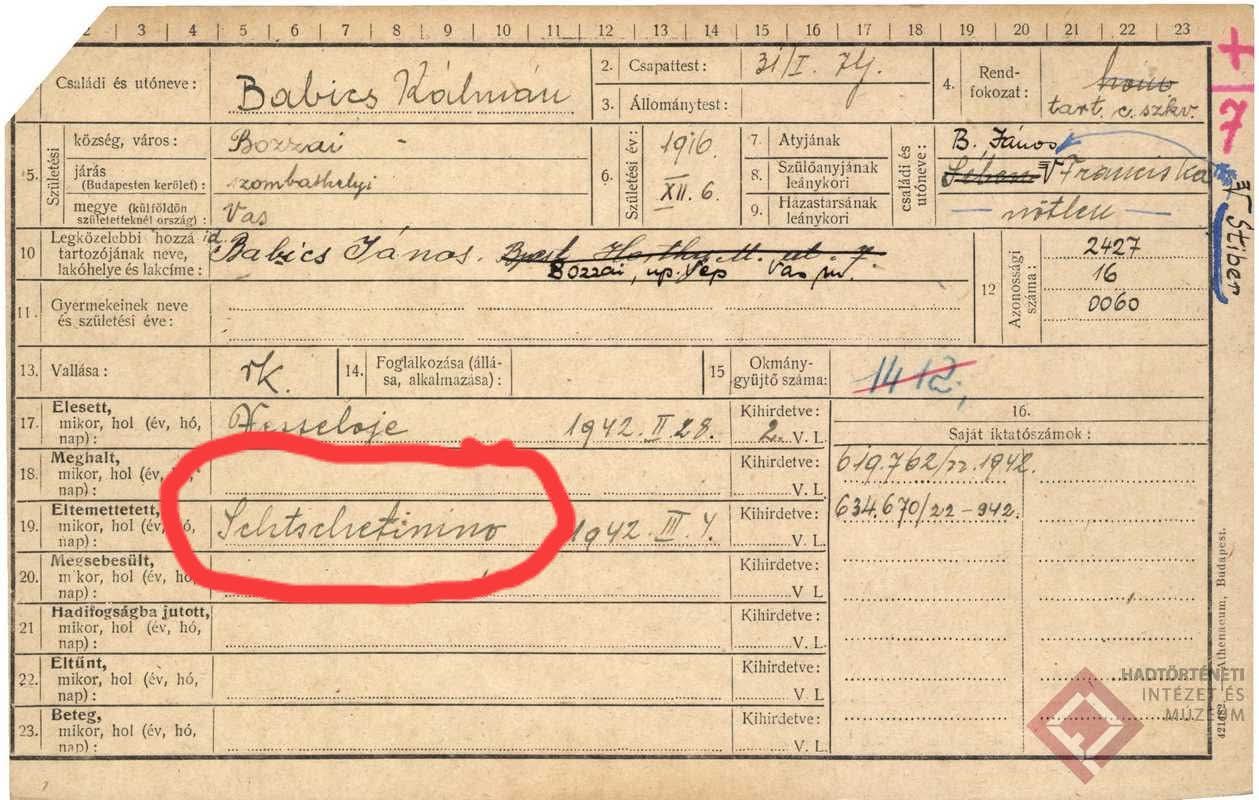 2 3 4 5 6 7 8 9 10 11 12 13 14 15 16 17 18 19 20 21 22 23
Családi és utóneve: Babics Kálmán
2. Csapattest: 31/I. zlj.
3. Állománytest:
4. Rendfokozat: honv
tart. c. szkv.
+ 7
5. Születési
község, város: Bozzai
járás (Budapesten kerület): szombathelyi
megye (külföldön születetteknél ország): Vas
6. Születési év: 1916.
XII. 6.
7. Atyjának
8. Szülőanyjának leánykori
9. Házastársának leánykori
családi és utóneve:
B. János
Franciska
nőtlen
Stiber
10 Legközelebbi hozzátartozójának neve, lakóhelye és lakcíme: id. Babics János. Bpest Horthy M. út 7.
Bozzai, up. Vép Vas m.
11. Gyermekeinek neve és születési éve:
12 Azonossági száma:
2427
16
0060
13. Vallása: rk.
14. Foglalkozása (állása, alkalmazása):
15 Okmánygyűjtő száma: 1412,
17. Elesett, mikor, hol (év, hó, nap): Vesseloje 1942. II. 28. Kihirdetve: 2. V. L.
18. Meghalt, mikor, hol (év, hó, nap): Kihirdetve: V. L.
19. Eltemettetett, mikor, hol (év, hó, nap): Schtschetinino 1942. III. 4. Kihirdetve: V. L.
20. Megsebesült, mikor, hol (év, hó, nap): Kihirdetve: V L
21 Hadifogságba jutott, mikor, hol (év, hó, nap): Kihirdetve: V. L.
22. Eltűnt, mikor, hol (év, hó, nap): Kihirdetve: V. L
23. Beteg, mikor, hol (év, hó, nap): Kihirdetve: V. L.
16.
Saját iktatószámok:
619.762/22.1942.
634.670/22-942.
HADTÖRTÉNETI
INTÉZET ÉS
MÚZEUM
Athenaeum, Budapest.